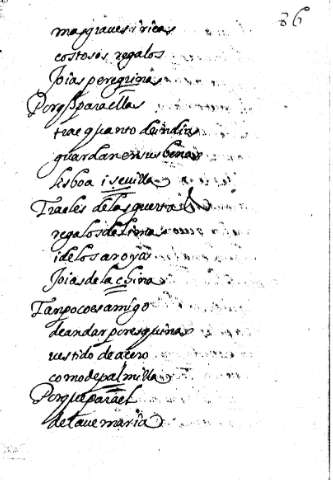 86
mas graues i ricas
costosos regalos
Joias peregrinas
Porq̃ para ellas
trae quanto la india
guardan en sus
lisboa i seuilla
Traeles de las guertas
regalos de lima
i de los aroyos
Joias de la china
Tanpoco es amigo
de andar por esquinas
uestido de acero
como de palmilla
Porque para el
de la aue maria